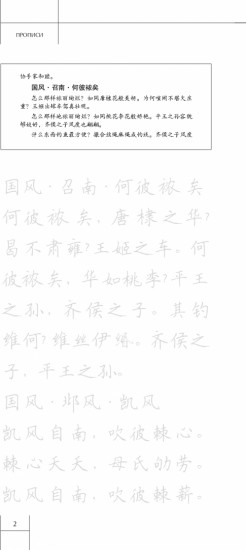 ПРОПИСИ
国风·召南·何彼襛矣
怎么那样秾丽绚烂？如同唐棣花般美好。为何喧闹不堪欠庄
重？王姬出嫁车驾真壮观。
怎么那样地秾丽绚烂？如同桃花李花般娇艳。平王之孙容貌
够姣好，齐侯之子风度也翩翩。
什么东西钓鱼最方便？撮合丝绳麻绳成钓线。齐侯之子风度
国风·召南·何彼襛矣
何彼襛矣，唐棣之华？
曷不肃雍？王姬之车。何
彼襛矣，华如桃李？平王
之孙，齐侯之子。其钓
维何？维丝伊缗。齐侯之
子，平王之孙。
国风·邶风·凯风
凯风自南，吹彼棘心。
棘心夭夭，母氏劬劳。
凯风自南，吹彼棘薪。
2